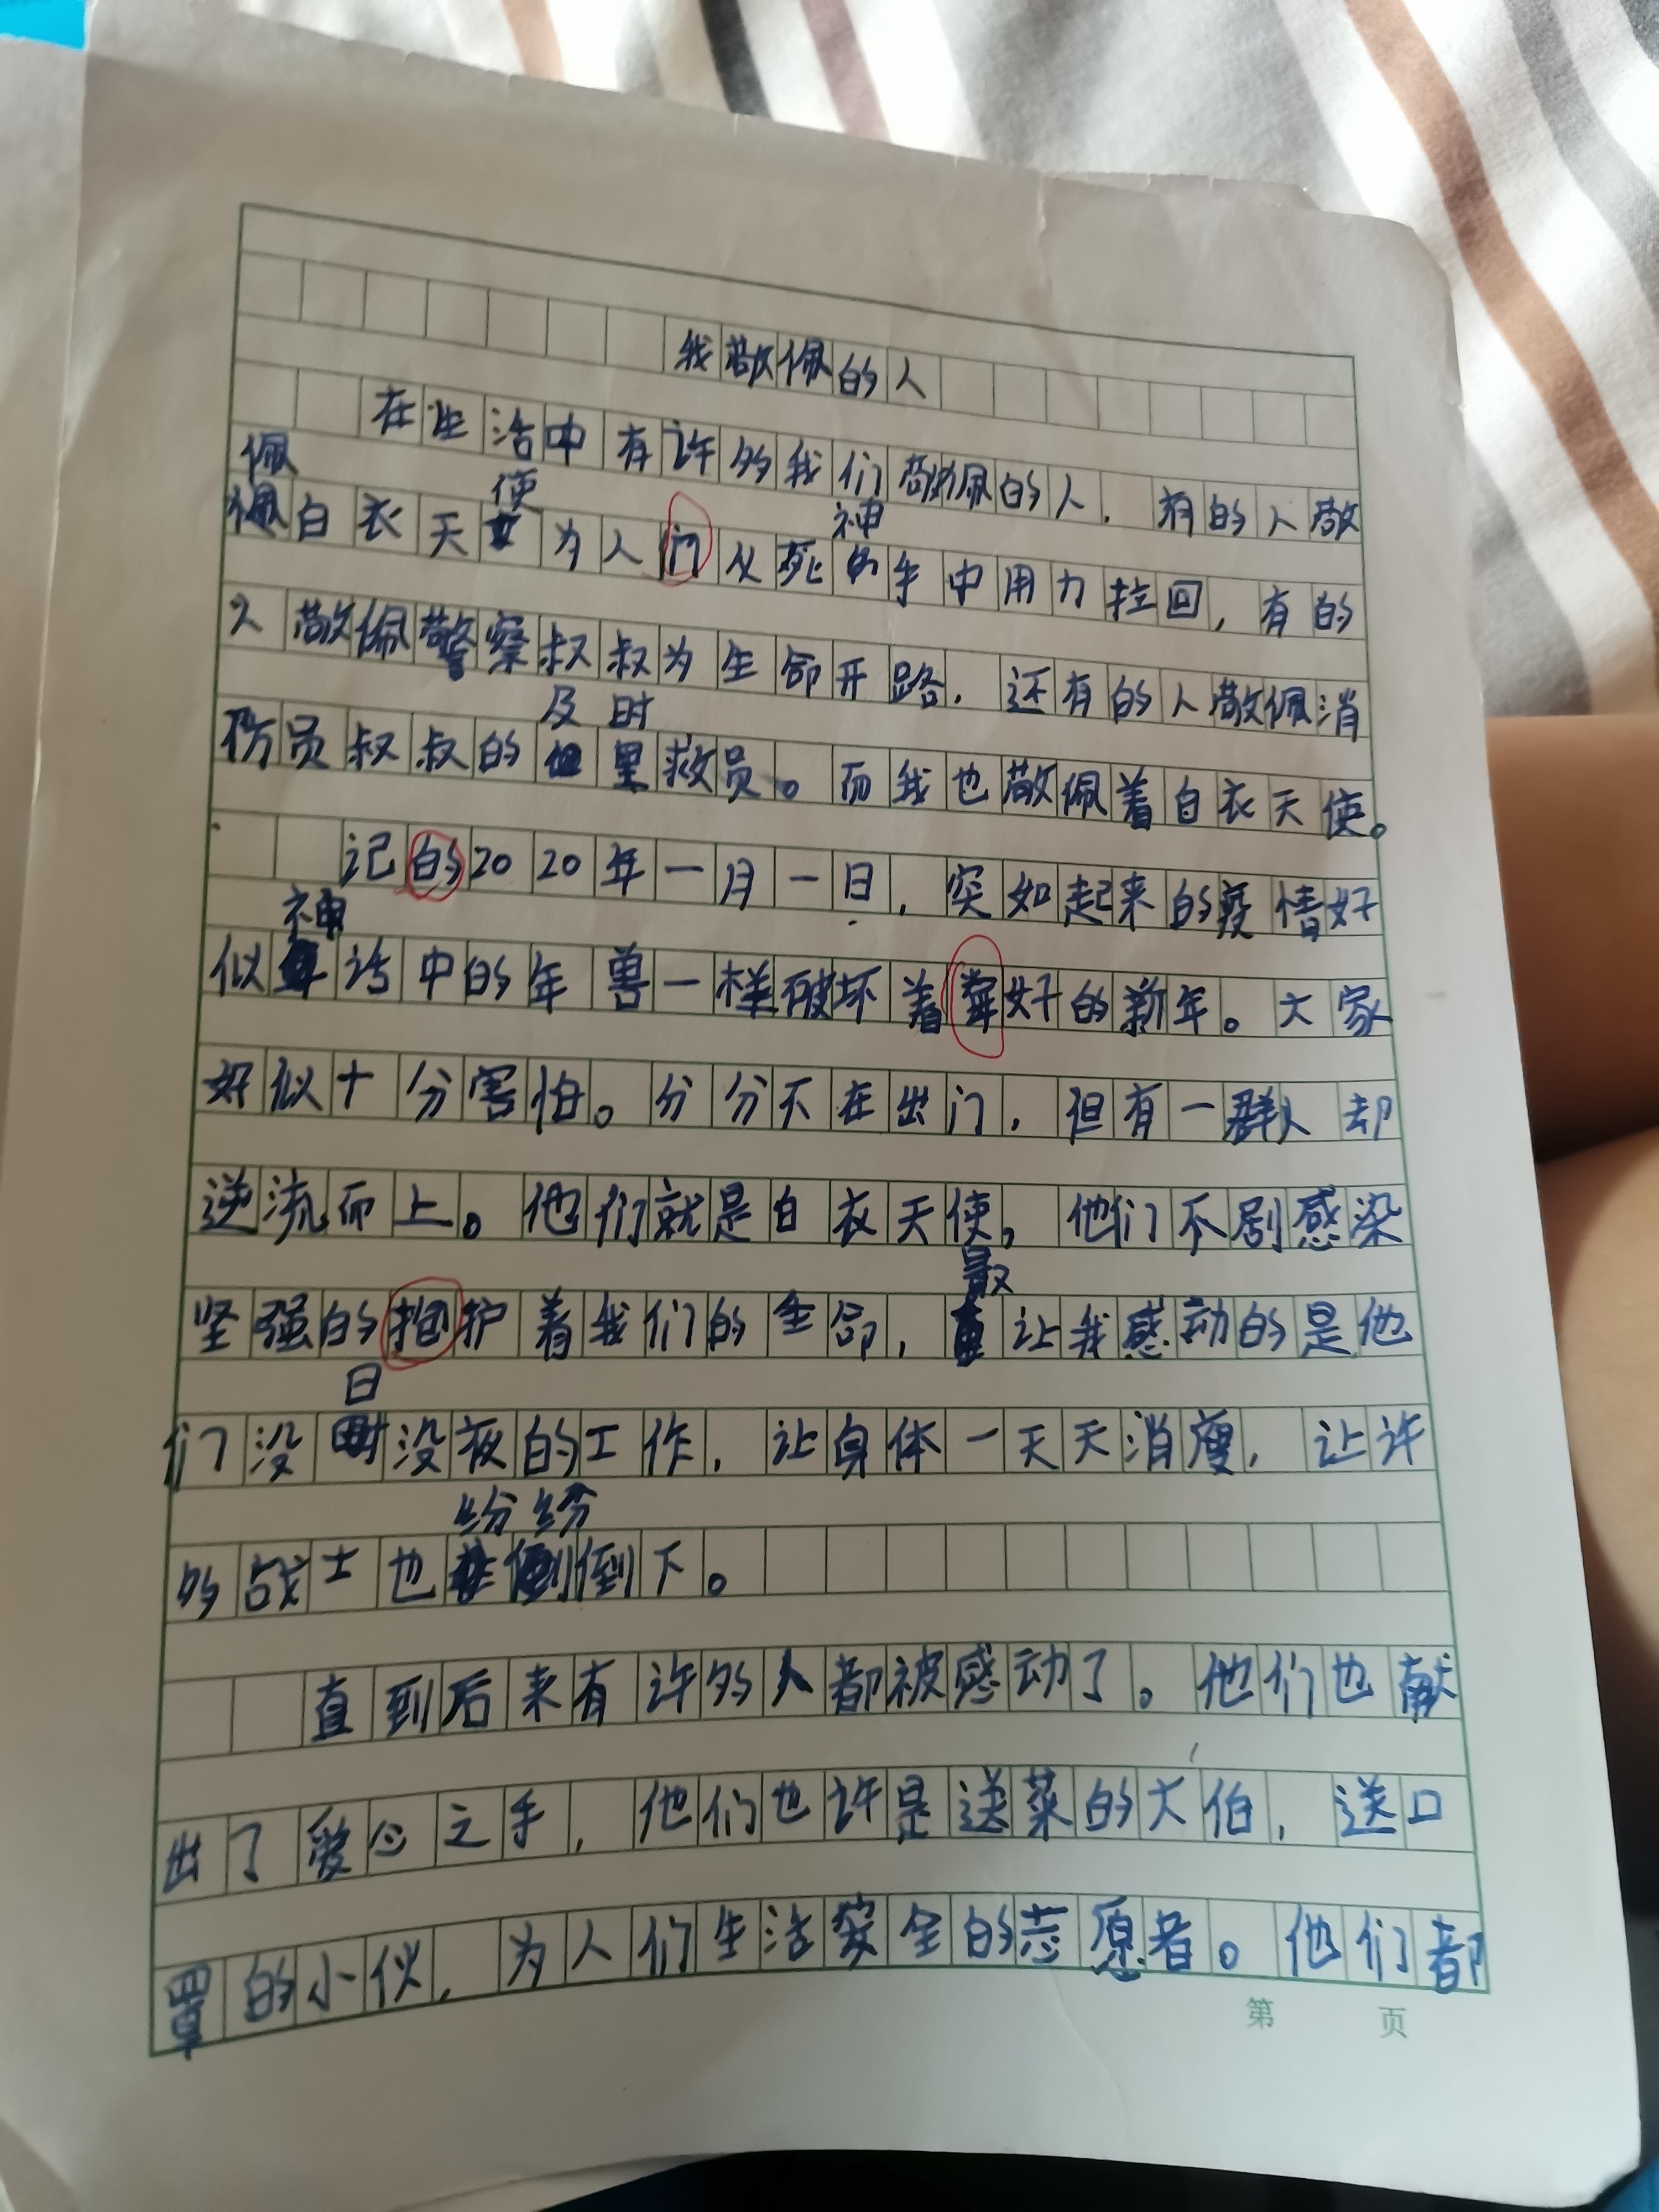 我敬佩的人
在生活中有许多我们敬佩的人，有的人敬
佩白衣天使为人门从死神手中用力拉回，有的
人敬佩警察叔叔为生命开路，还有的人敬佩消
防员叔叔的及时救员。而我也敬佩着白衣天使。
记的2020年一月一日，突如起来的疫情好
似神话中的年兽一样破坏着好的新年。大家
好似十分害怕。分分不在出门，但有一群人却
逆流而上。他们就是白衣天使，他们不剧感染
坚强的抱护着我们的生命，最让我感动的是他
们没日没夜的工作，让身体一天天消瘦，让许
多战士也纷纷倒下。
直到后来有许多人都被感动了。他们也献
出了爱心之手，他们也许是送菜的大伯，送口
罩的小伙，为人们生活安全的志愿者。他们都
第 页